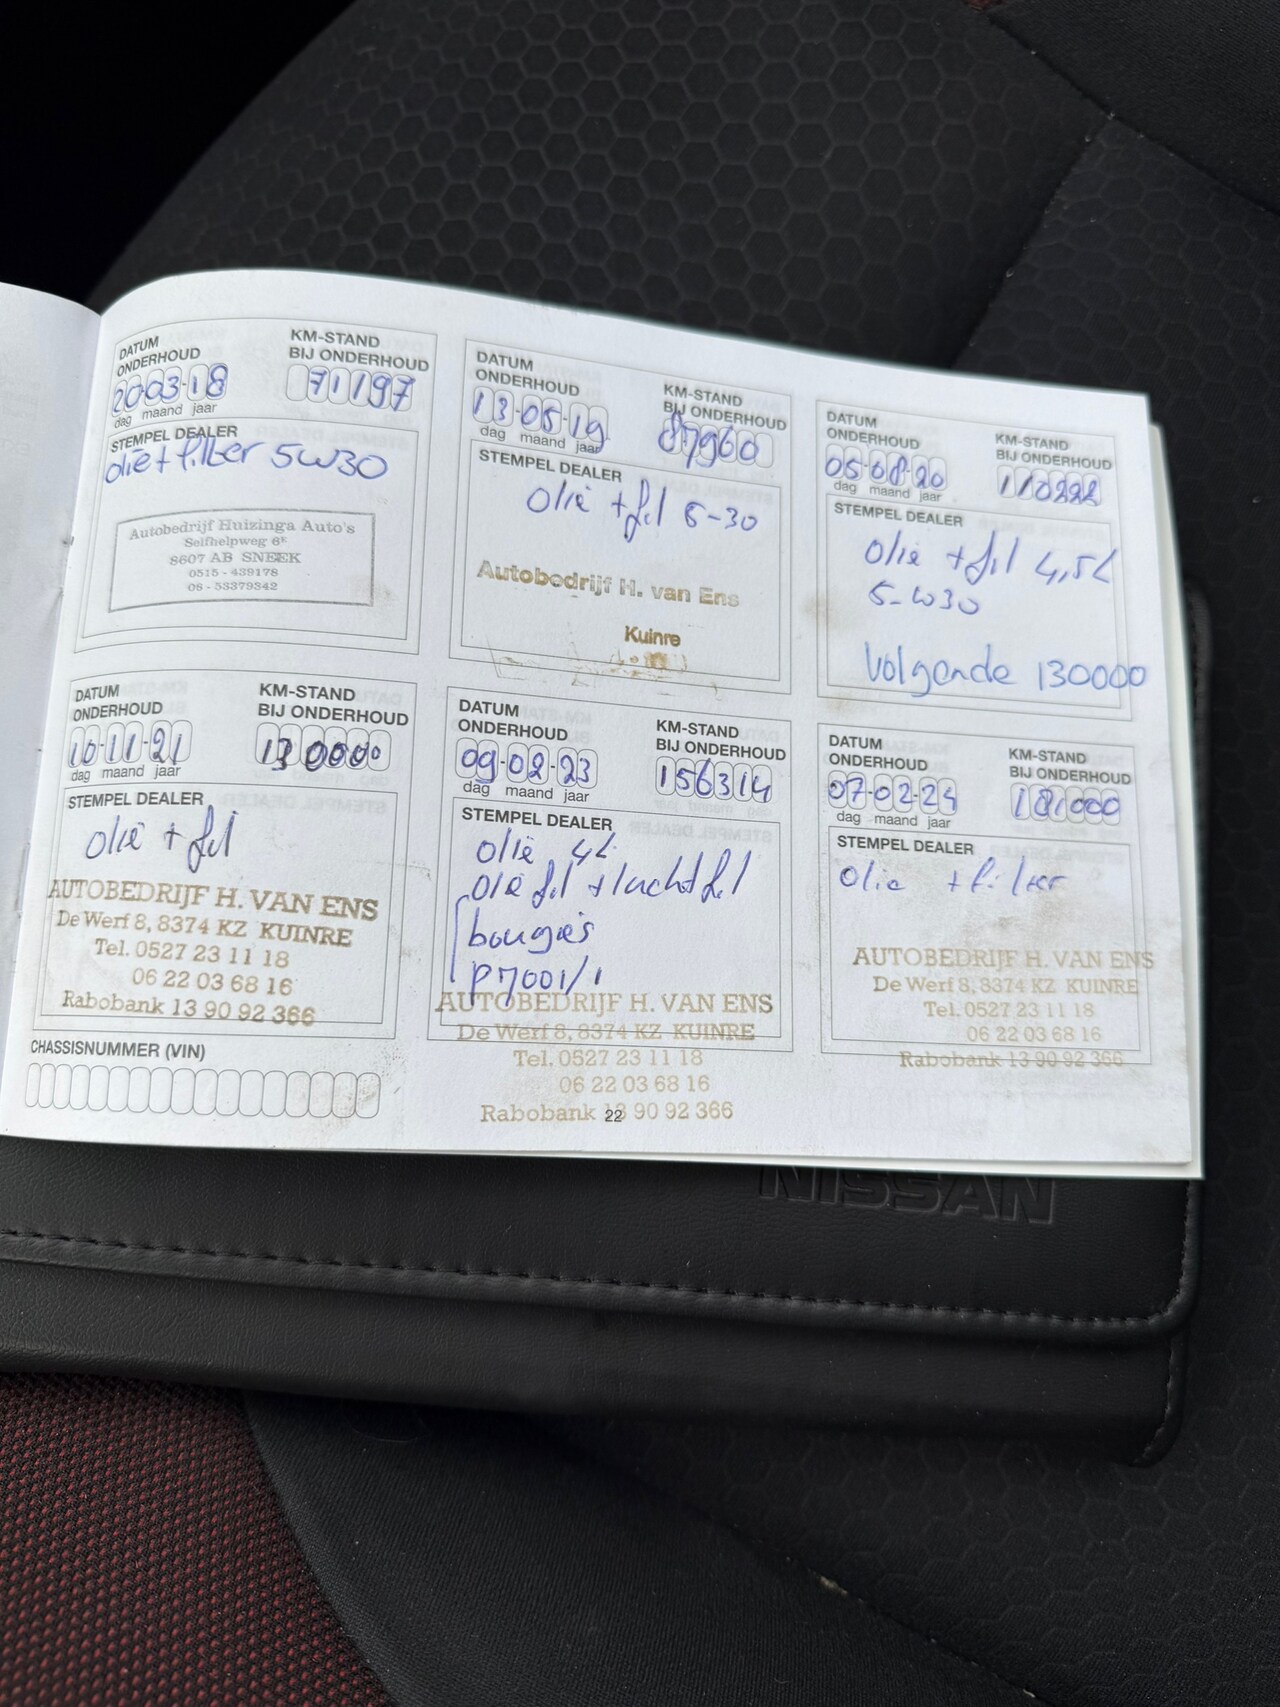 DATUM
ONDERHOUD
KM-STAND
BIJ ONDERHOUD
20-03-18
71197
dag maand jaar
STEMPEL DEALER
olie + filter 5W30
Autobedrijf Huizinga Auto's
Selfhelpweg 6ᴷ
8607 AB SNEEK
0515 - 439178
06 - 53379342
DATUM
ONDERHOUD
KM-STAND
BIJ ONDERHOUD
13-05-19
87960
dag maand jaar
STEMPEL DEALER
Olie + fil 5-30
Autobedrijf H. van Ens
Kuinre
DATUM
ONDERHOUD
KM-STAND
BIJ ONDERHOUD
05-08-20
110222
dag maand jaar
STEMPEL DEALER
Olie + fil 4,5L
5-W30
Volgende 130000
DATUM
ONDERHOUD
KM-STAND
BIJ ONDERHOUD
10-11-21
130000
dag maand jaar
STEMPEL DEALER
olie + fil
AUTOBEDRIJF H. VAN ENS
De Werf 8, 8374 KZ KUINRE
Tel. 0527 23 11 18
06 22 03 68 16
Rabobank 13 90 92 366
DATUM
ONDERHOUD
KM-STAND
BIJ ONDERHOUD
09-02-23
156314
dag maand jaar
STEMPEL DEALER
olie 4L
olie fil + lucht fil
bougies
P7001/1
AUTOBEDRIJF H. VAN ENS
De Werf 8, 8374 KZ KUINRE
Tel. 0527 23 11 18
06 22 03 68 16
Rabobank 13 90 92 366
DATUM
ONDERHOUD
KM-STAND
BIJ ONDERHOUD
07-02-24
181000
dag maand jaar
STEMPEL DEALER
Olie + filter
AUTOBEDRIJF H. VAN ENS
De Werf 8, 8374 KZ KUINRE
Tel. 0527 23 11 18
06 22 03 68 16
Rabobank 13 90 92 366
CHASSISNUMMER (VIN)
22
NISSAN